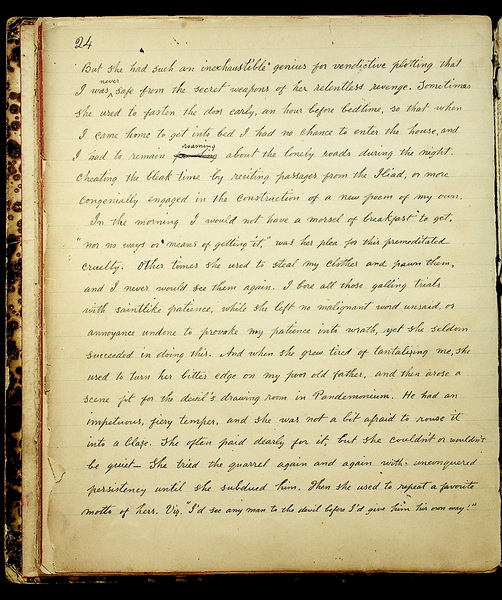 24
But she had such an inexhaustible genius for vendictive plotting that
never
I was safe from the secret weapons of her relentless revenge. Sometimes
she used to fasten the door early, an hour before bedtime, so that when
I came home to get into bed I had no chance to enter the house, and
roaming
I had to remain about the lonely roads during the night.
Cheating the bleak time by reciting passages from the Iliad, or more
congenially engaged in the construction of a new poem of my own.
In the morning I would not have a morsel of breakfast to get,
"nor no ways or means of getting it," was her plea for this premeditated
cruelty. Other times she used to steal my clothes and pawn them,
and I never would see them again. I bore all those galling trials
with saintlike patience, while she left no malignant word unsaid, or
annoyance undone to provoke my patience into wrath, yet she seldom
succeeded in doing this. And when she grew tired of tantalising me, she
used to turn her bitter edge on my poor old father, and then arose a
scene fit for the devil's drawing room in Pandemonium. He had an
impetuous, fiery temper, and she was not a bit afraid to rouse it
into a blaze. She often paid dearly for it, but she couldn't or wouldn't
be quiet— She tried the quarrel again and again with unconquered
persistency until she subdued him. Then she used to repeat a favorite
motto of hers. Viz. "I'd see any man to the devil before I'd give him his own way!"